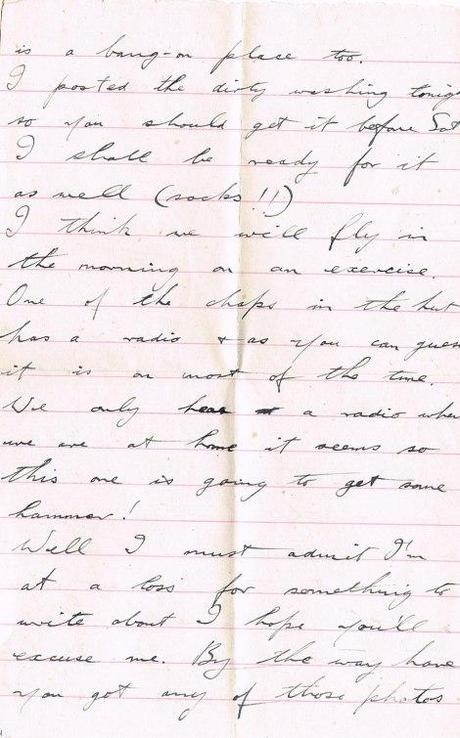 is a bang-on place too.
I posted the dirty washing tonig
so you should get it before Sat
I shall be ready for it
as well (socks!!)
I think we we'll fly in
the morning on an exercise.
One of the chaps in the hut
has a radio & as you can guess
it is on most of the time.
We only hear a radio when
we are at home it seems so
this one is going to get some
hammer!
Well I must admit I'm
at a loss for something to
write about I hope you'll
excuse me. By the way have
you got any of those photos